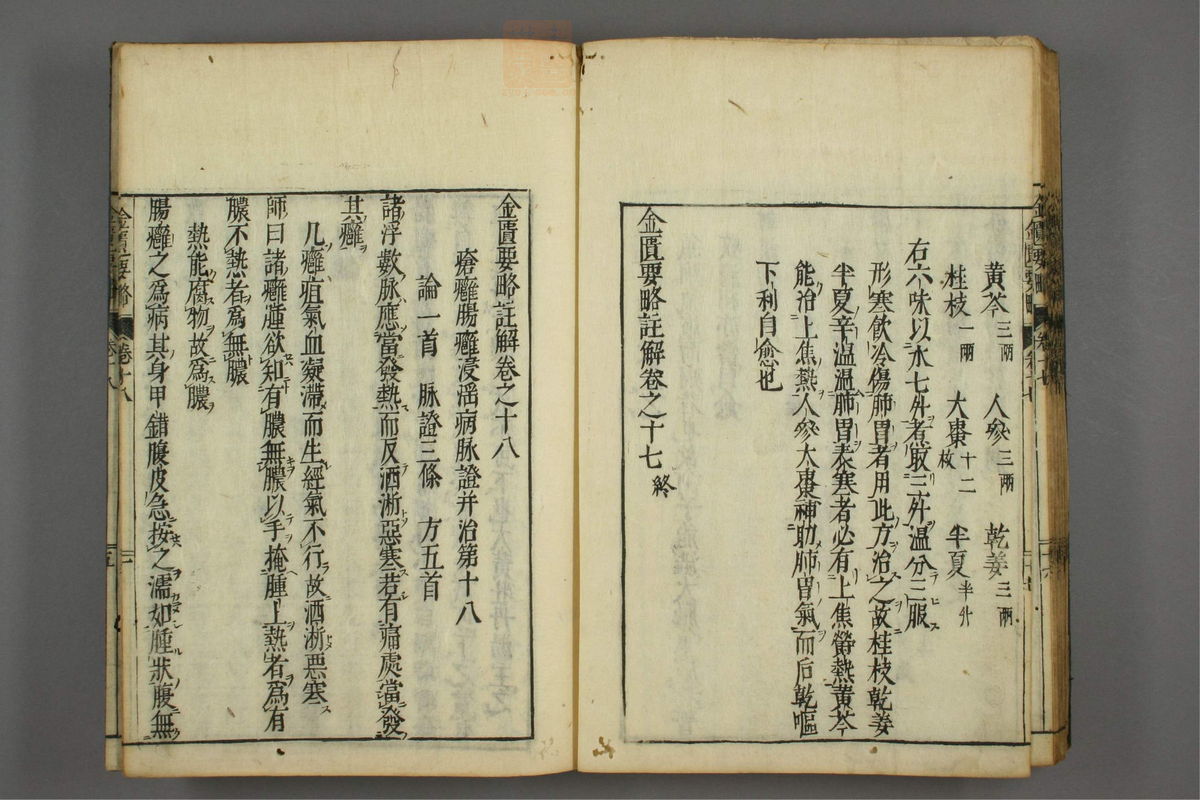 黃芩三兩　人參三兩　乾姜三兩
桂枝一兩　大棗十二枚　半夏半升
右六味以水七升煮取三升溫分三服
形寒飲冷傷肺胃者用此方治之故桂枝乾姜
半夏辛溫溫肺胃表寒者必有上焦欝熱黃芩
能治上焦熱人參大棗補助肺胃氣而后乾嘔
下利自愈也
金匱要略註解卷之十七終
金匱要略註解卷之十八
瘡癰腸癰浸淫病脉證并治第十八
論一首　脉證三條　方五首
諸浮數脉應當發熱而反洒淅惡寒若有痛處當發
其癰
凡癰疽氣血凝滯而生經氣不行故洒淅惡寒
師曰諸癰腫欲知有膿無膿以手掩腫上熱者為有
膿不熱者為無膿
熱能腐物故為膿
腸癰之為病其身甲錯腹皮急按之濡如腫狀腹無